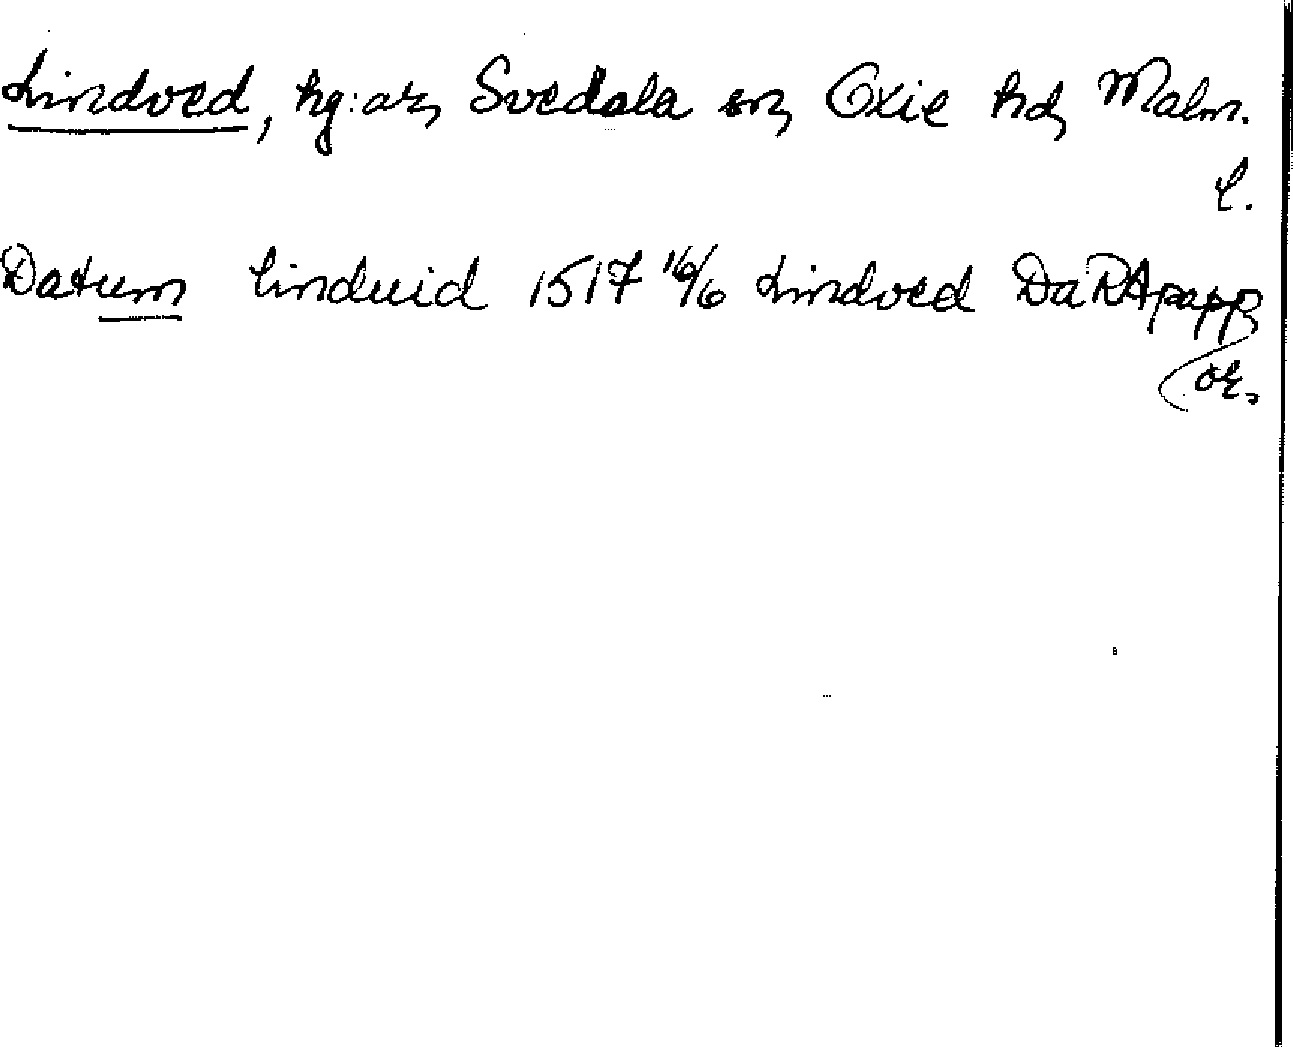 Lindved, hg:ar, Svedala sn, Oxie hd, Malm.
l.
Datum linduid 1517 16/6 Lindved DaRApapp
or.